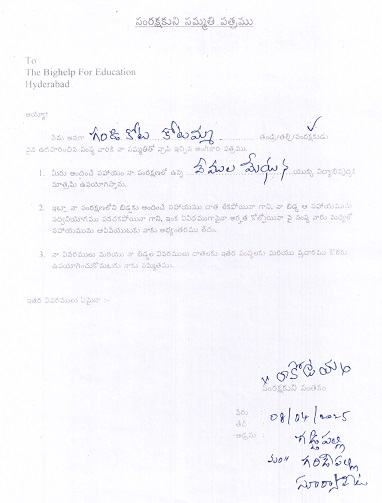 సంరక్షకుని సమ్మతి పత్రము
To
The Bighelp For Education
Hyderabad
అయ్యా
నేను అనగా గండికోట కోటమ్మ తండ్రి/తల్లి/సంరక్షకుడు
పైన ఉదహరించిన సంస్థ వారికి నా సమ్మతితో వ్రాసి ఇచ్చిన అంగీకార పత్రము.
1. మీరు అందించే సహాయం నా సంరక్షణలో ఉన్న వేముల మేఘన యొక్క విద్యాభివృద్ధికి
మాత్రమే ఉపయోగిస్తాను.
2. ఇట్లా, నా సంరక్షణలోని బిడ్డకు అందించే సహాయము దాత లేకపోయినా గాని, నా బిడ్డ ఆ సహాయమును
సద్వినియోగము పరచకపోయినా గాని, ఇంక ఏవిధముగానైనా అర్హత కోల్పోయినా పై సంస్థ వారు మధ్యలో
సహాయమును ఆపివేయుటకు నాకు అభ్యంతరము లేదు.
3. నా వివరములు మరియు నా బిడ్డల వివరములు దాతలకు ఇతర సంస్థలకు మరియు ప్రచారము కొరకు
ఉపయోగించుకోవడానికి నాకు సమ్మతము.
ఇతర వివరములు ఏమైనా :-
సంరక్షకుని సంతకం
పేరు :
తేదీ : 08/04/2025
అడ్రసు : గడ్డిపల్లి
మం॥ గరిడేపల్లి
సూర్యాపేట